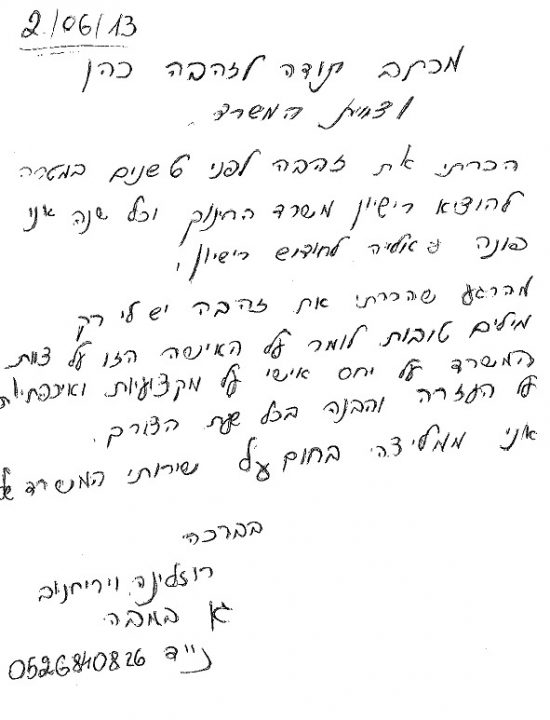 2/06/13
מכתב תודה לזהבה כהן
וצוות המשרד.
הכרתי את זהבה לפני 6 שנים במטרה
להוציא רישיון משרד החינוך וכל שנה אני
פונה אליה לחודש רישיון,
מהרגע שהכרתי את זהבה יש לי רק
מילים טובות לומר על האישה הזו על צוות
המשרד על יחס אישי על מקצועיות ואיכפתיות
על העזרה והבנה בכל שעת הצורך.
אני ממליצה בחום על שירותי המשרד של
בברכה
רוזלינה
גן במבה
נייד 0526840826